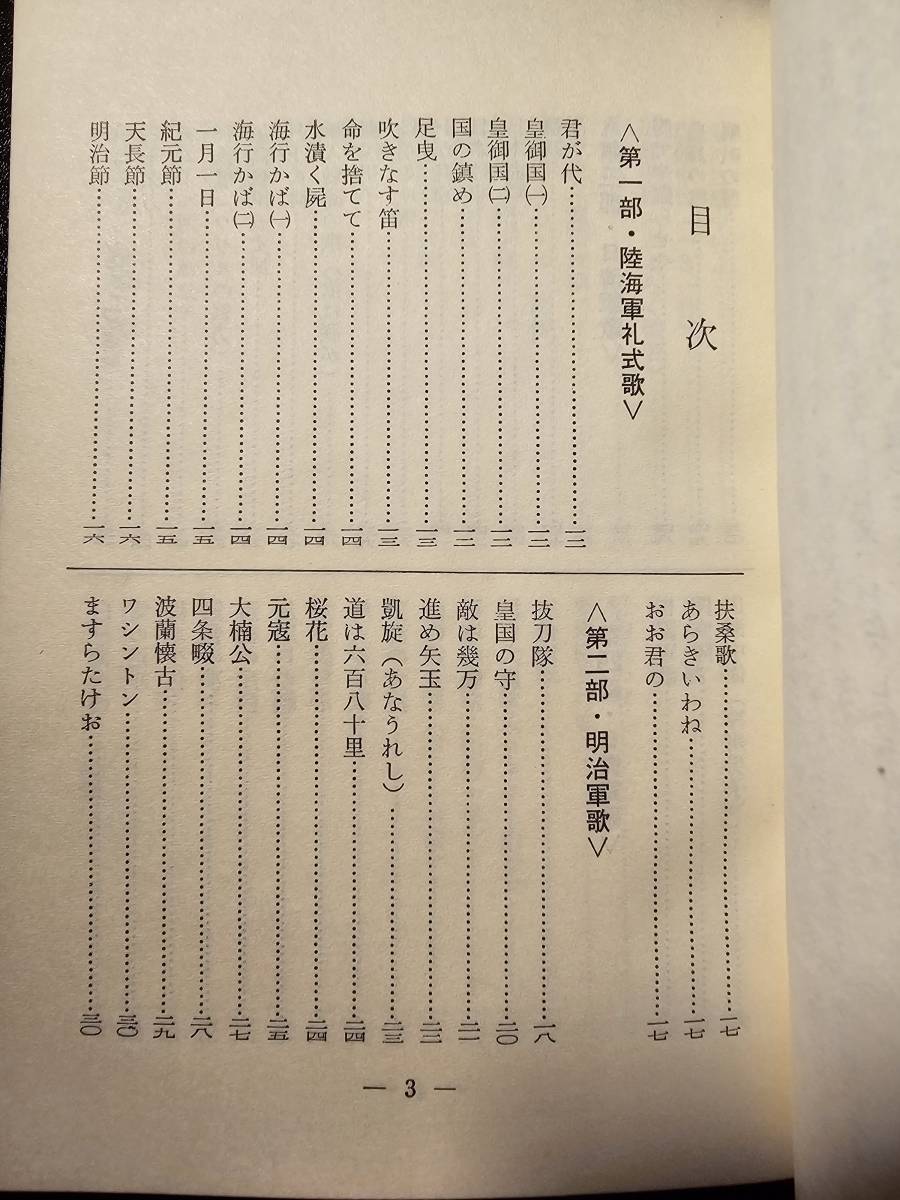 目次
〈第一部・陸海軍礼式歌〉
君が代……一二
皇御国㈠……一二
皇御国㈡……一二
国の鎮め……一二
足曳……一三
吹きなす笛……一三
命を捨てて……一四
水漬く屍……一四
海行かば㈠……一四
海行かば㈡……一四
一月一日……一五
紀元節……一五
天長節……一六
明治節……一六
扶桑歌……一七
あらきいわね……一七
おお君の……一七
〈第二部・明治軍歌〉
抜刀隊……一八
皇国の守……二〇
敵は幾万……二一
進め矢玉……二二
凱旋（あなうれし）……二三
道は六百八十里……二四
桜花……二四
元寇……二五
大楠公……二七
四条畷……二八
波蘭懐古……二九
ワシントン……三〇
ますらたけお……三〇
— 3 —